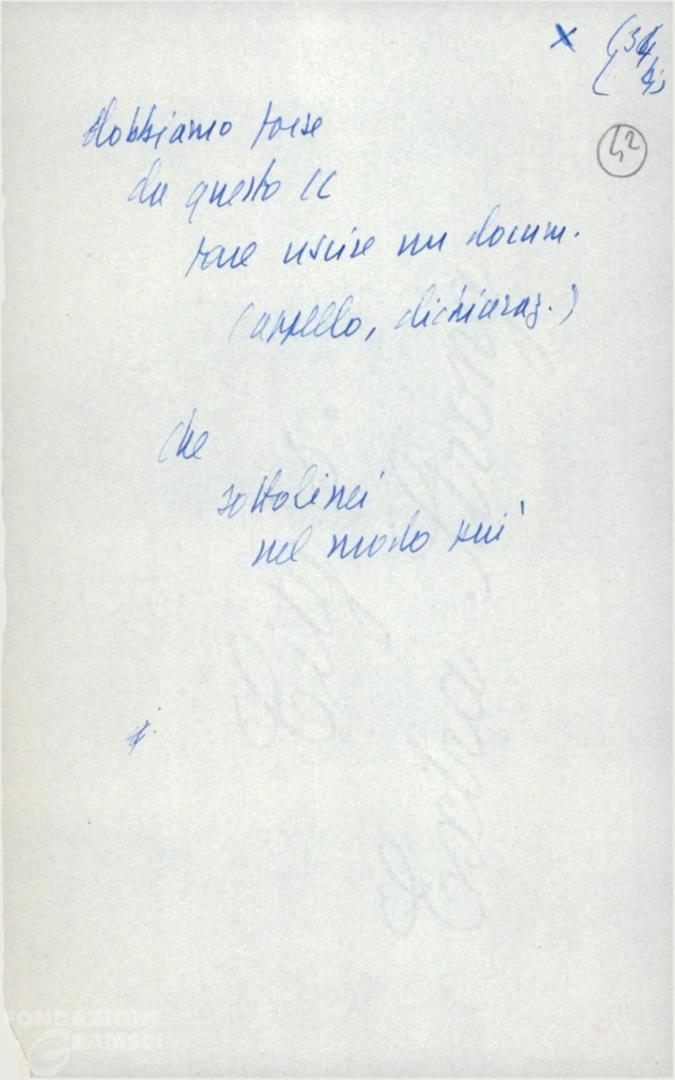 x (34
( bis
42
Dobbiamo forse
da questo CC
fare uscire un docum.
(appello, dichiaraz.)
che
sottolinei
nel modo più
FONDAZIONE
GRAMSCI